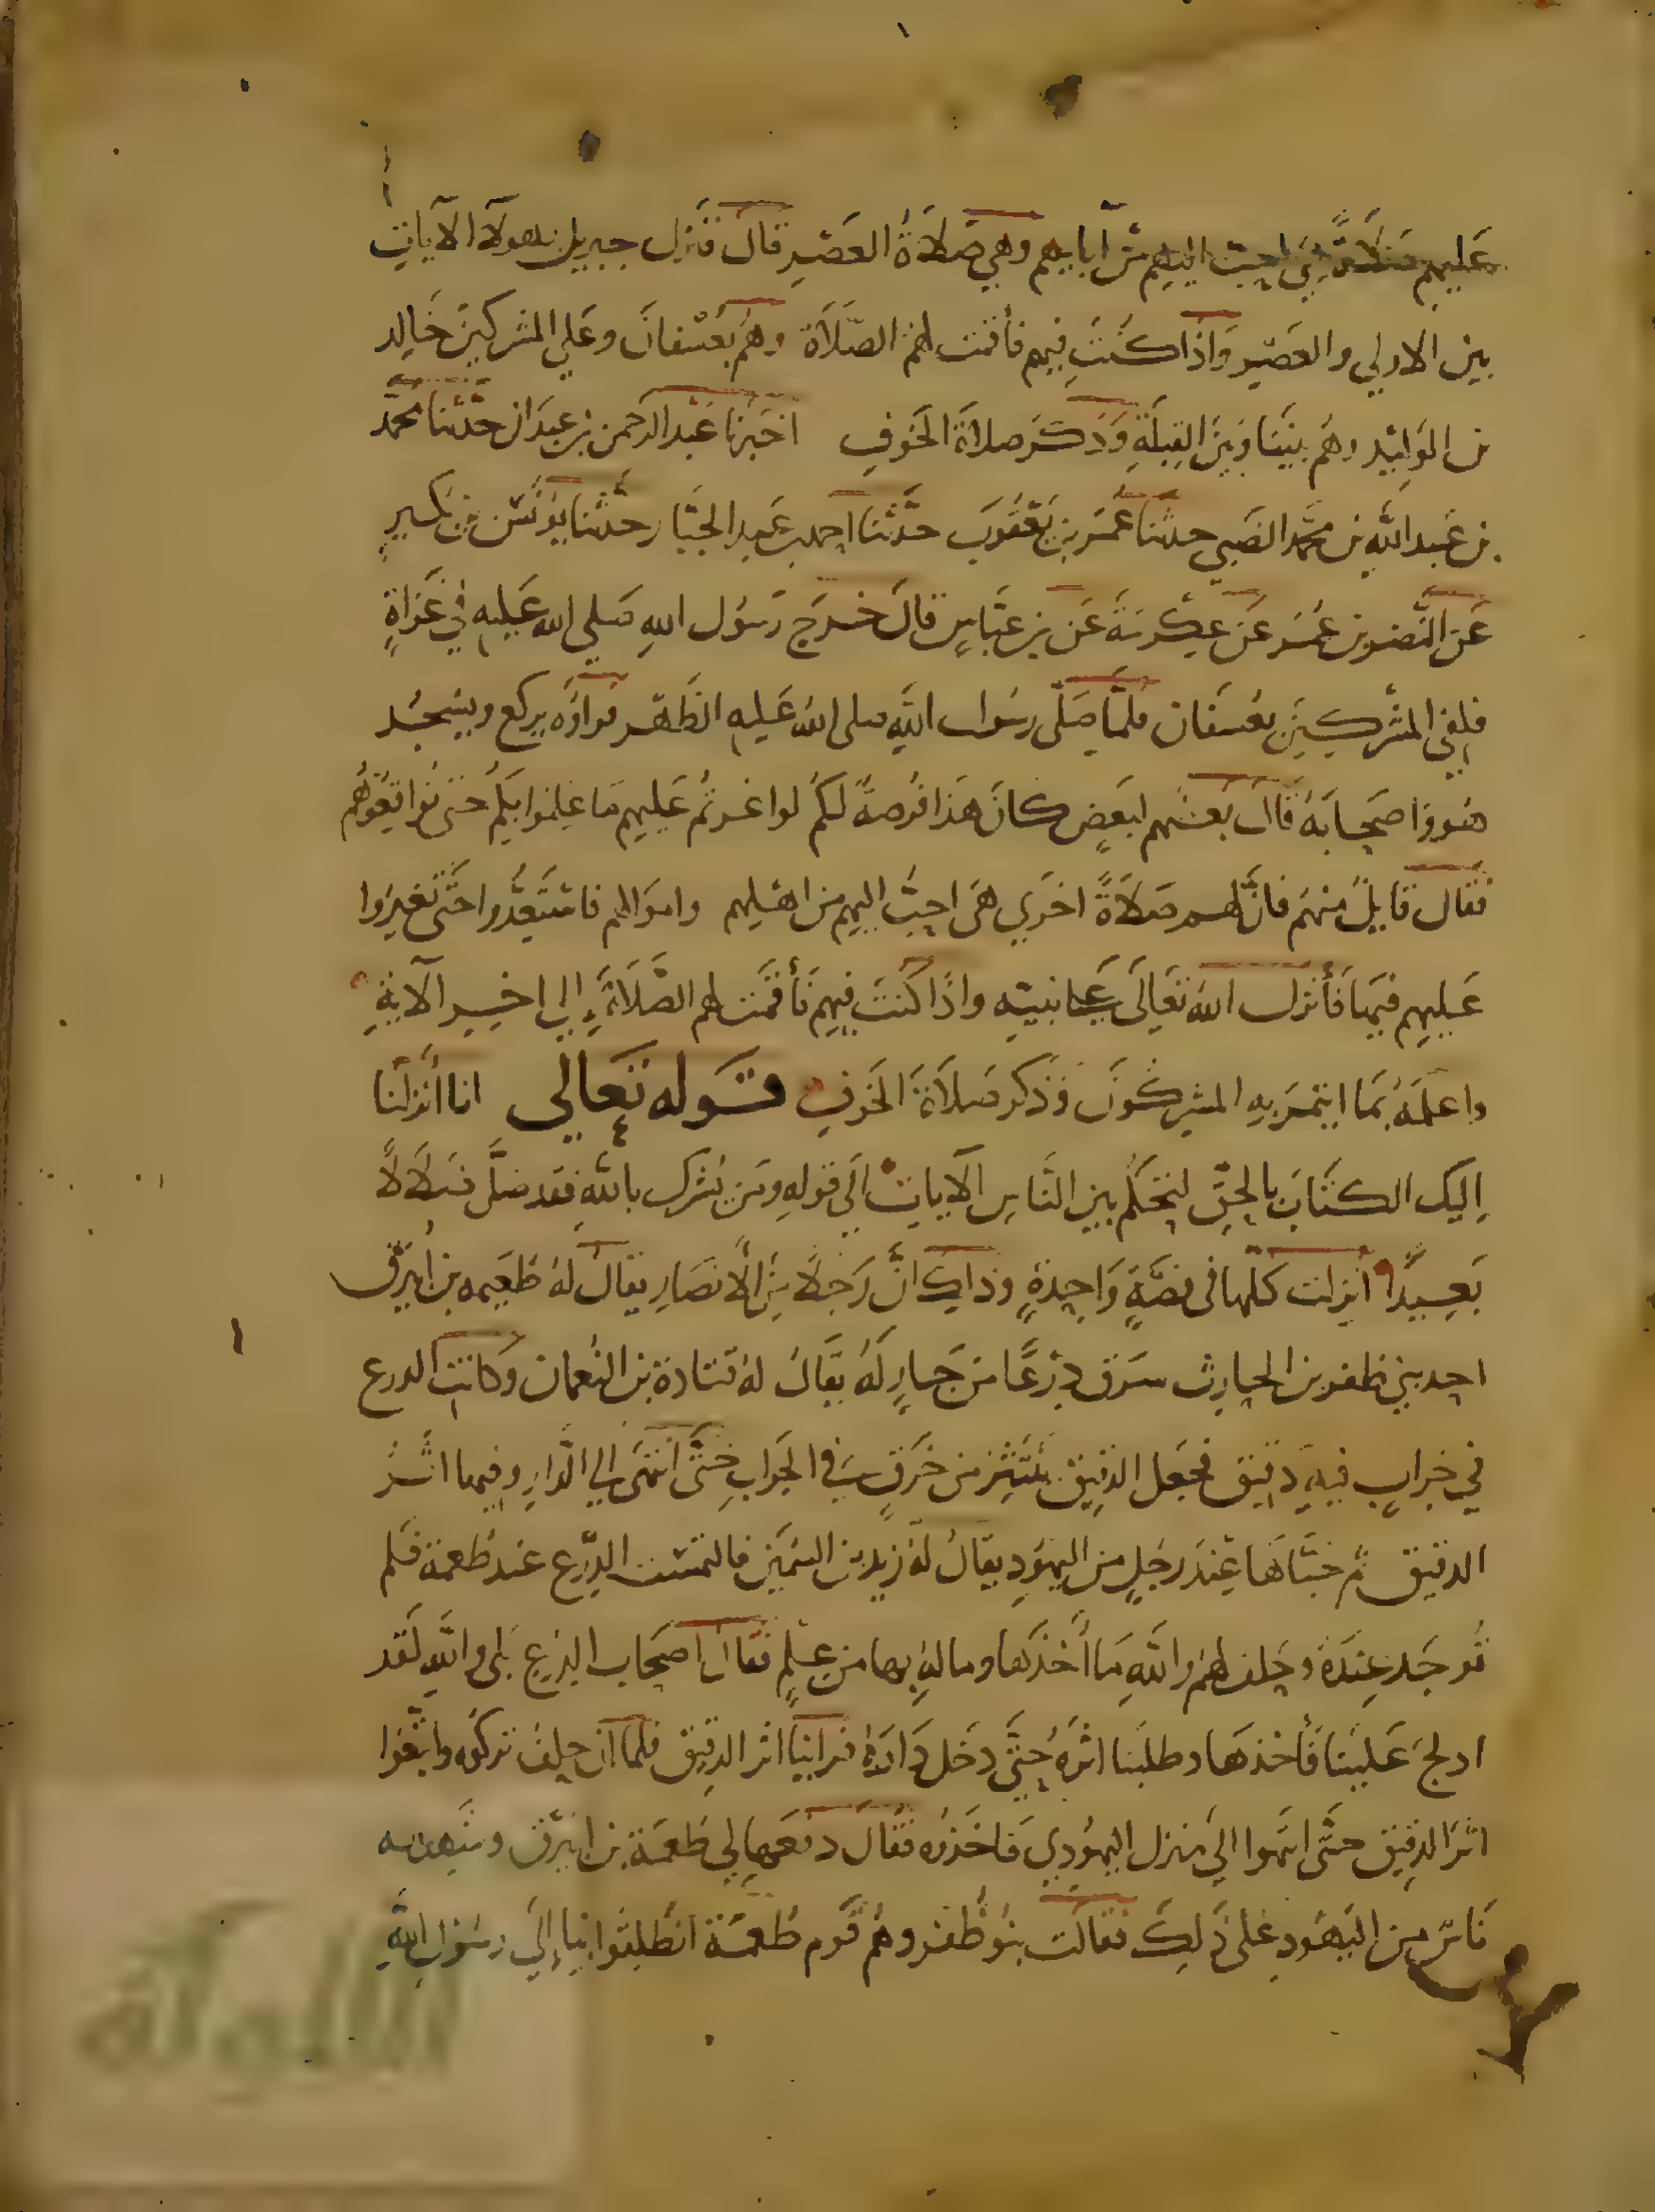 عَليهم صَلاَةً هي احبّ اليهم من آبايهم وهي صَلاَةُ العَصْرِ قال فَنزل جبريل بهولآ الآيات
بين الاولي والعَصْرِ وَاذَا كنتَ فيهم فأقمت لهم الصّلاَة وهم بعُسْفانَ وعَلي المشركينَ خَالِد
بن الوَليْد وهُم بينَنا وَبَيْنَ القِبلَةِ وَذكَر صلاةَ الخَوفِ اخبَرنا عَبْد الرحمن بن عبدَان حدّثنا محمّد
بن عَبد اللّهِ بن محمّد الضَبي حدثنا محمّد بن يَعْقوبَ حدَّثنا احمد بن عَبد الجبَّار حدَّثنا يُونُس بن بُكَيرٍ
عَن النَّضر بن عُمَر عَن عِكْرمَةَ عَن بن عَبَّاسٍ قالَ خرَج رَسُول اللهِ صَلي الله عَليهِ في غَزاةٍ
فلقى المشركِينَ بعُسفان فلمّا صَلّى رسُول اللّهِ صلى اللهُ عَليهِ الظّهْر فراوْه يركع ويسْجُد
هُو واصحَابَهُ قَال بعضُهم لبَعضٍ كانَ هَذا فُرصةً لكُم لو اغرتُم عَليهم مَا عَلِموا بِكُم حتى تُواقِعُوهُم
فقال قَايِلٌ منهم فانَّ لهم صَلاَةً اخرَي هي احبُّ اليهم من اهْليهم وامَوالهم فاسْتَعِدُّوا حتَّى تغيرُوا
عَليهم فيهَا فَأنزل اللهَ تعَالَى عَلى نبيّه واذَا كنتَ فيهم فَأقمت لهم الصَّلاَةَ إلي اخِر الآيةِ
واعلمَهُ بمَا ايتمرَ بهِ المشركُونَ وَذكر صَلاَةَ الخَوفِ قَوله تَعَالي انا أنزلنَا
إليك الكتَابَ بالحقِّ لتحكُم بين النَّاسِ الآيات الَي قولهِ ومَن يُشرك باللّهِ فقد ضلَّ ضَلاَلاً
بَعِيدًا أنزلت كلّها في قصَّةٍ وَاحِدةٍ وَذلِكَ انَّ رَجُلاً مِنَ الأنصَارِ يقَالُ لهُ طُعمه بن أُبَيْرق
احد بني ظفر بن الحارِث سرَق دِرْعًا من جَارٍ لَهُ يقَالُ لهُ قتادة بن النُعمان وَكانَت الدرع
في جِرابٍ فيهِ دَقيق فجَعل الدقيق يَنْتَثِر من خَرقٍ في الجِرَابِ حتَّى انتهَى الي الدَّارِ وفيها اثَرُ
الدقيق ثم خَبَّاهَا عِندَ رجُلٍ من اليَهُودِ يقَالُ لهُ زيد بن السَّمين فالتمسَت الدِرع عند طُعمة فَلم
تُوجَد عِندَهُ وحَلف لهم واللّهِ مَا أخذهَا وما لهُ بها من عِلمٍ فقال اصحَاب الدِرعِ بَلى واللّهِ لَقَد
ادلجَ عَلينَا فَأخذهَا وطلبنا اثرَهُ حتَّى دخَل دَارَهُ فراينَا اثر الدقيق فلما ان حلفَ تركُوه واتَّبعُوا
اثرَ الدقيق حتَّى انتهوا اليَ منزل اليهُودِي فَاخَذوه فقَال دفَعهَا لي طُعمَة بن ابَيْرق وشَهِد له
نَاسٌ من اليَهُودِ عَلى ذَلِكَ فقالَت بنُو ظُفر وهُم قَوم طُعمَة انطَلِقوا بنا إلَي رسُول اللّهِ
الألوكة